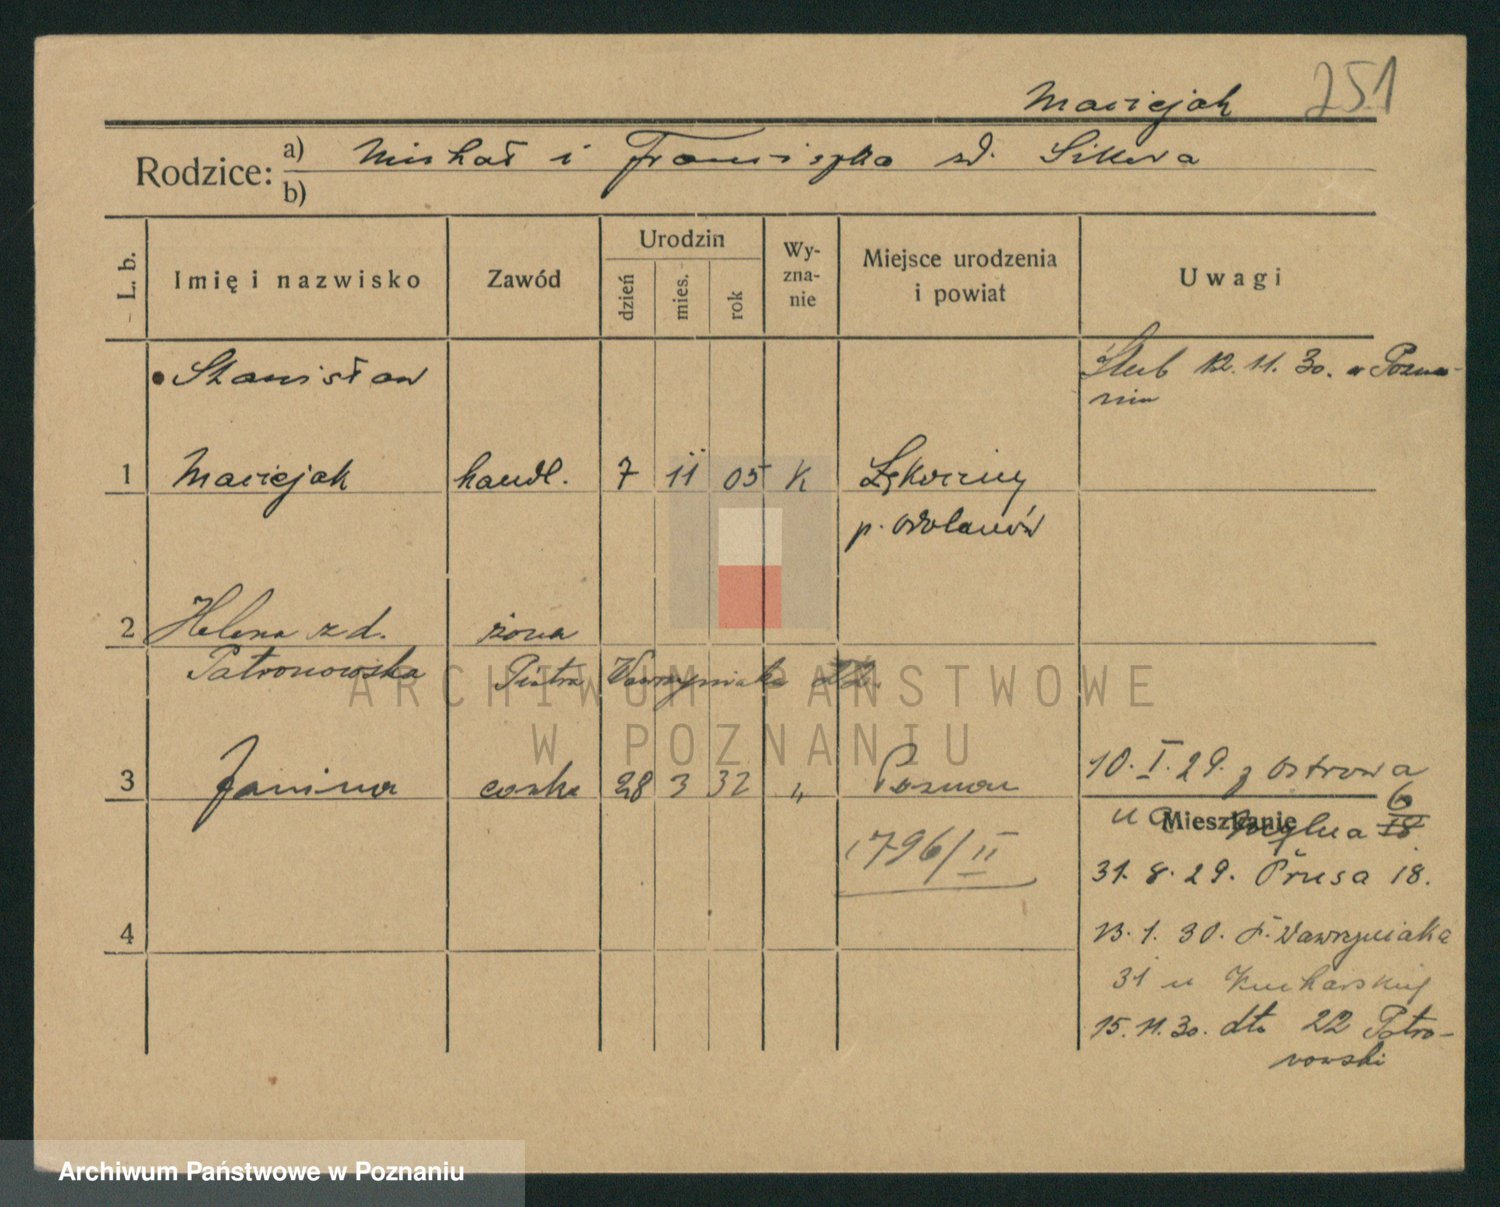 Maciejak 251
Rodzice: a) Michał i Franciszka zd. Sikora
b)
L. b. Imię i nazwisko Zawód Urodzin dzień mies. rok Wy-zna-nie Miejsce urodzenia i powiat Uwagi
Stanisław Ślub 12. 11. 30. w Pozna-
niu
1 Maciejak handl. 7 11 05 K
p. Odolanów
2 Helena z d. żona
Patronowska Piotra Wawrzyniaka 22.
3 Janina córka 28 3 32 " Poznań 10. I. 29. z Ostrowa
Mieszkanie
u 6 18
1796/II
31. 8. 29. Prusa 18.
4 13. 1. 30. P. Wawrzyniaka
31 u Kucharskiej
15. 11. 30. dto 22 Patro-
nowski
ARCHIWUM PAŃSTWOWE
W POZNANIU
Archiwum Państwowe w Poznaniu